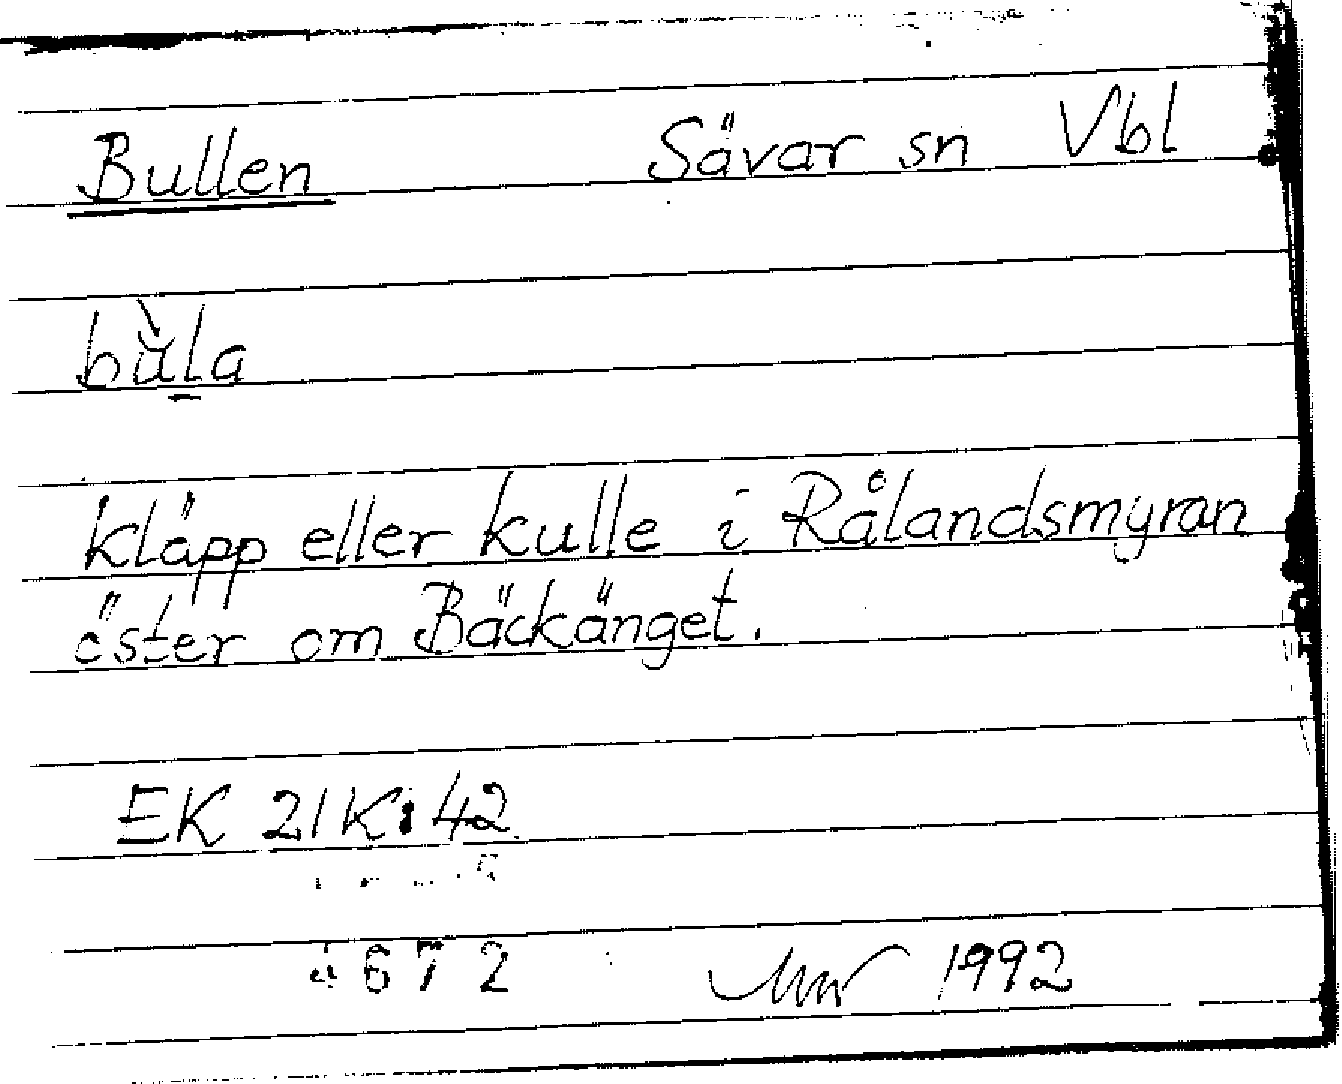 Bullen Sävar sn Vbl
bù̆l̠a
kläpp eller kulle i Rålandsmyran
öster om Bäckänget.
EK 21K:42
672 1992